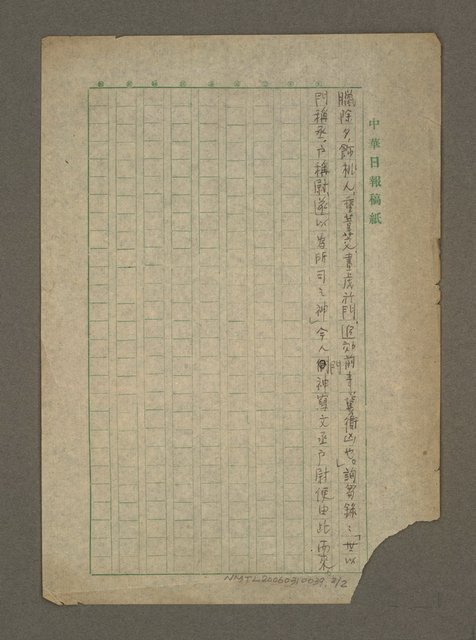 中華日報稿紙
臘除夕,飾桃人,垂葦茭,畫虎於門,追效前事,冀衛凶也。」詢芻錄:「世以
門稱丞,戶稱尉,遂以為所司之神」今人門神寫文丞戶尉便由此而來。
NMTL20060310039 2/2